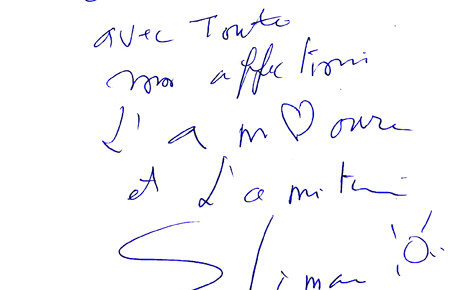 avec Toute
mon affection
L'am♡oure
et L'amitié
Sliman